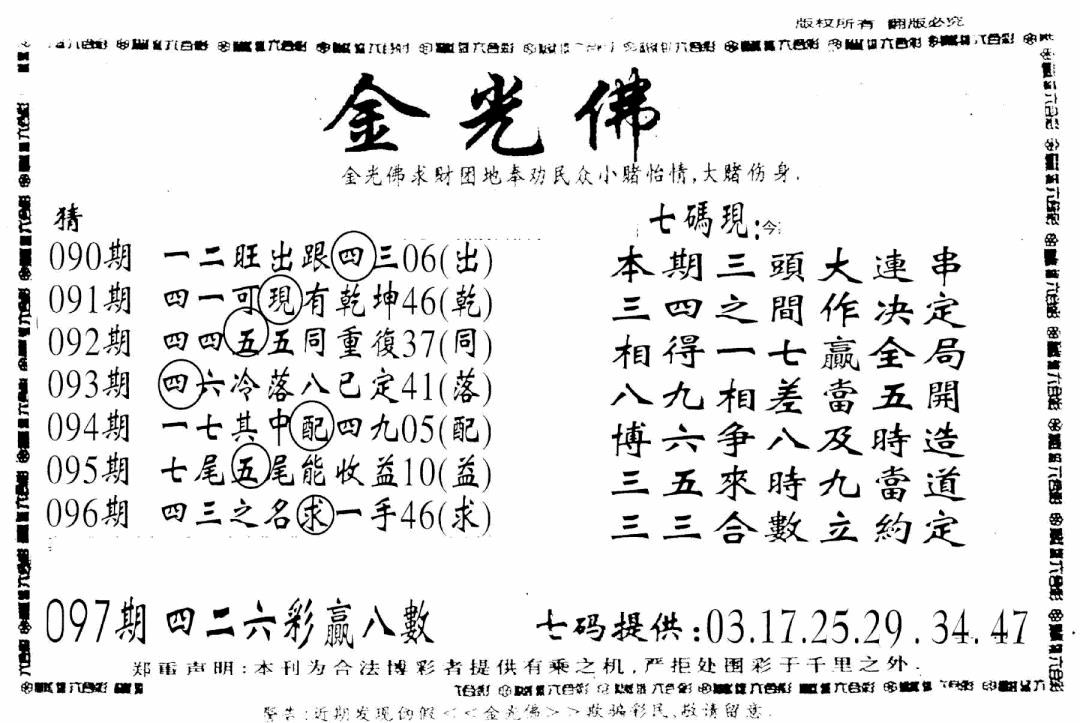 版权所有 翻版必究
金光佛
金光佛求财团地奉劝民众小赌怡情,大赌伤身.
猜
090期 一二旺出跟四三06(出)
091期 四一可現有乾坤46(乾)
092期 四四五五同重復37(同)
093期 四六冷落八已定41(落)
094期 一七其中配四九05(配)
095期 七尾五尾能收益10(益)
096期 四三之名求一手46(求)
七碼現:今
本期三頭大連串
三四之間作决定
相得一七贏全局
八九相差當五開
博六爭八及時造
三五來時九當道
三三合數立約定
097期 四二六彩贏八數
七码提供:03.17.25.29.34.47
郑重声明:本刊为合法博彩者提供有乘之机,严拒处围彩于千里之外.
警告:近期发现伪假<<金光佛>>欺骗彩民,敬请留意.